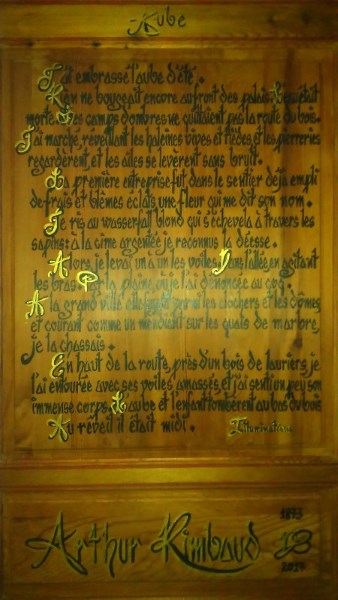 Aube
J'ai embrassé l'aube d'été.
Rien ne bougeait encore au front des palais. L'eau était
morte. Les camps d'ombres ne quittaient pas la route du bois.
J'ai marché, réveillant les haleines vives et tièdes, et les pierreries
regardèrent, et les ailes se levèrent sans bruit.
La première entreprise fut, dans le sentier déjà empli
de frais et blêmes éclats, une fleur qui me dit son nom.
Je ris au wasserfall blond qui s'échevela à travers les
sapins : à la cime argentée je reconnus la déesse.
Alors, je levai un à un les voiles. Dans l'allée, en agitant
les bras. Par la plaine, où je l'ai dénoncée au coq.
A la grand'ville elle fuyait parmi les clochers et les dômes
et courant comme un mendiant sur les quais de marbre,
je la chassais.
En haut de la route, près d'un bois de lauriers, je
l'ai entourée avec ses voiles amassés, et j'ai senti un peu son
immense corps. L'aube et l'enfant tombèrent au bas du bois
Au réveil il était midi.
Illuminations
Arthur Rimbaud
1873
B